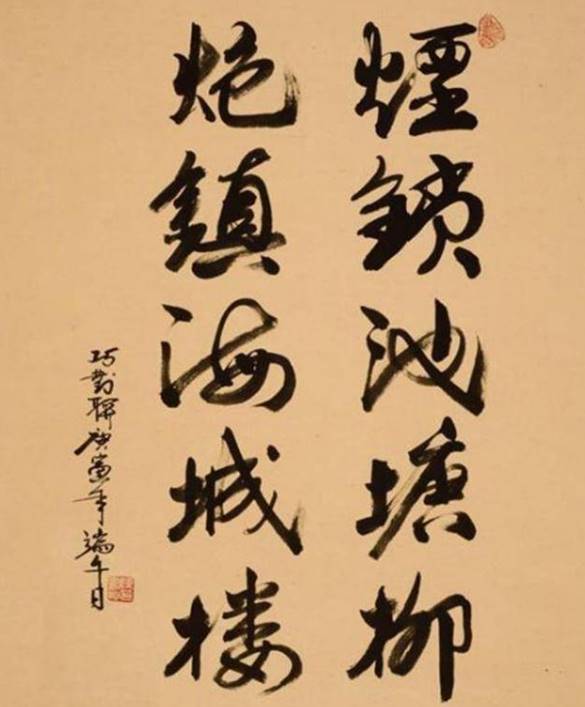 煙鎖池塘柳
炮鎮海城楼
巧對聯庚寅年端午日